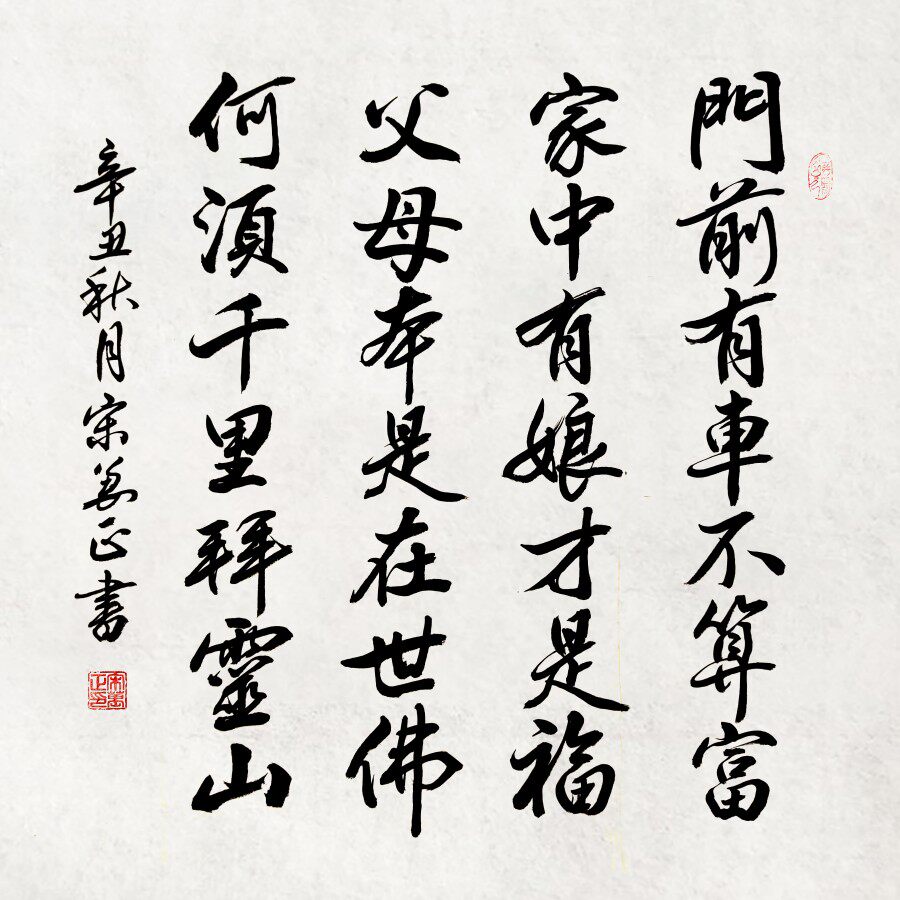 門前有車不算富
家中有娘才是福
父母本是在世佛
何須千里拜靈山
辛丑秋月宋善正書